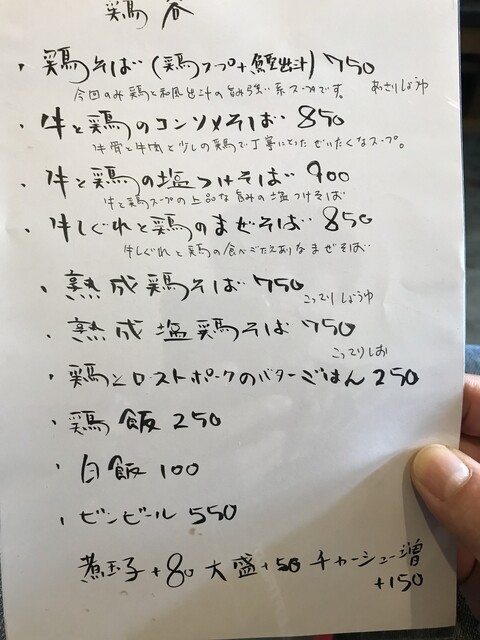 鶏 谷
・鶏そば(鶏スープ+鯛出汁) 750
今回のみ鶏と和風出汁の旨み強い系スープです。 あっさりしょうゆ
・牛と鶏のコンソメそば 850
牛骨と牛肉と少しの鶏で丁寧にとったぜいたくなスープ。
・牛と鶏の塩つけそば 900
牛と鶏スープの上品な旨みの塩つけそば
・牛しぐれと鶏のまぜそば 850
牛しぐれと鶏の食べごたえありなまぜそば
・熟成鶏そば 750
こってりしょうゆ
・熟成塩鶏そば 750
こってりしお
・鶏とローストポークのバターごはん 250
・鶏飯 250
・白飯 100
・ビンビール 550
煮玉子+80 大盛+50 チャーシュー増
+150